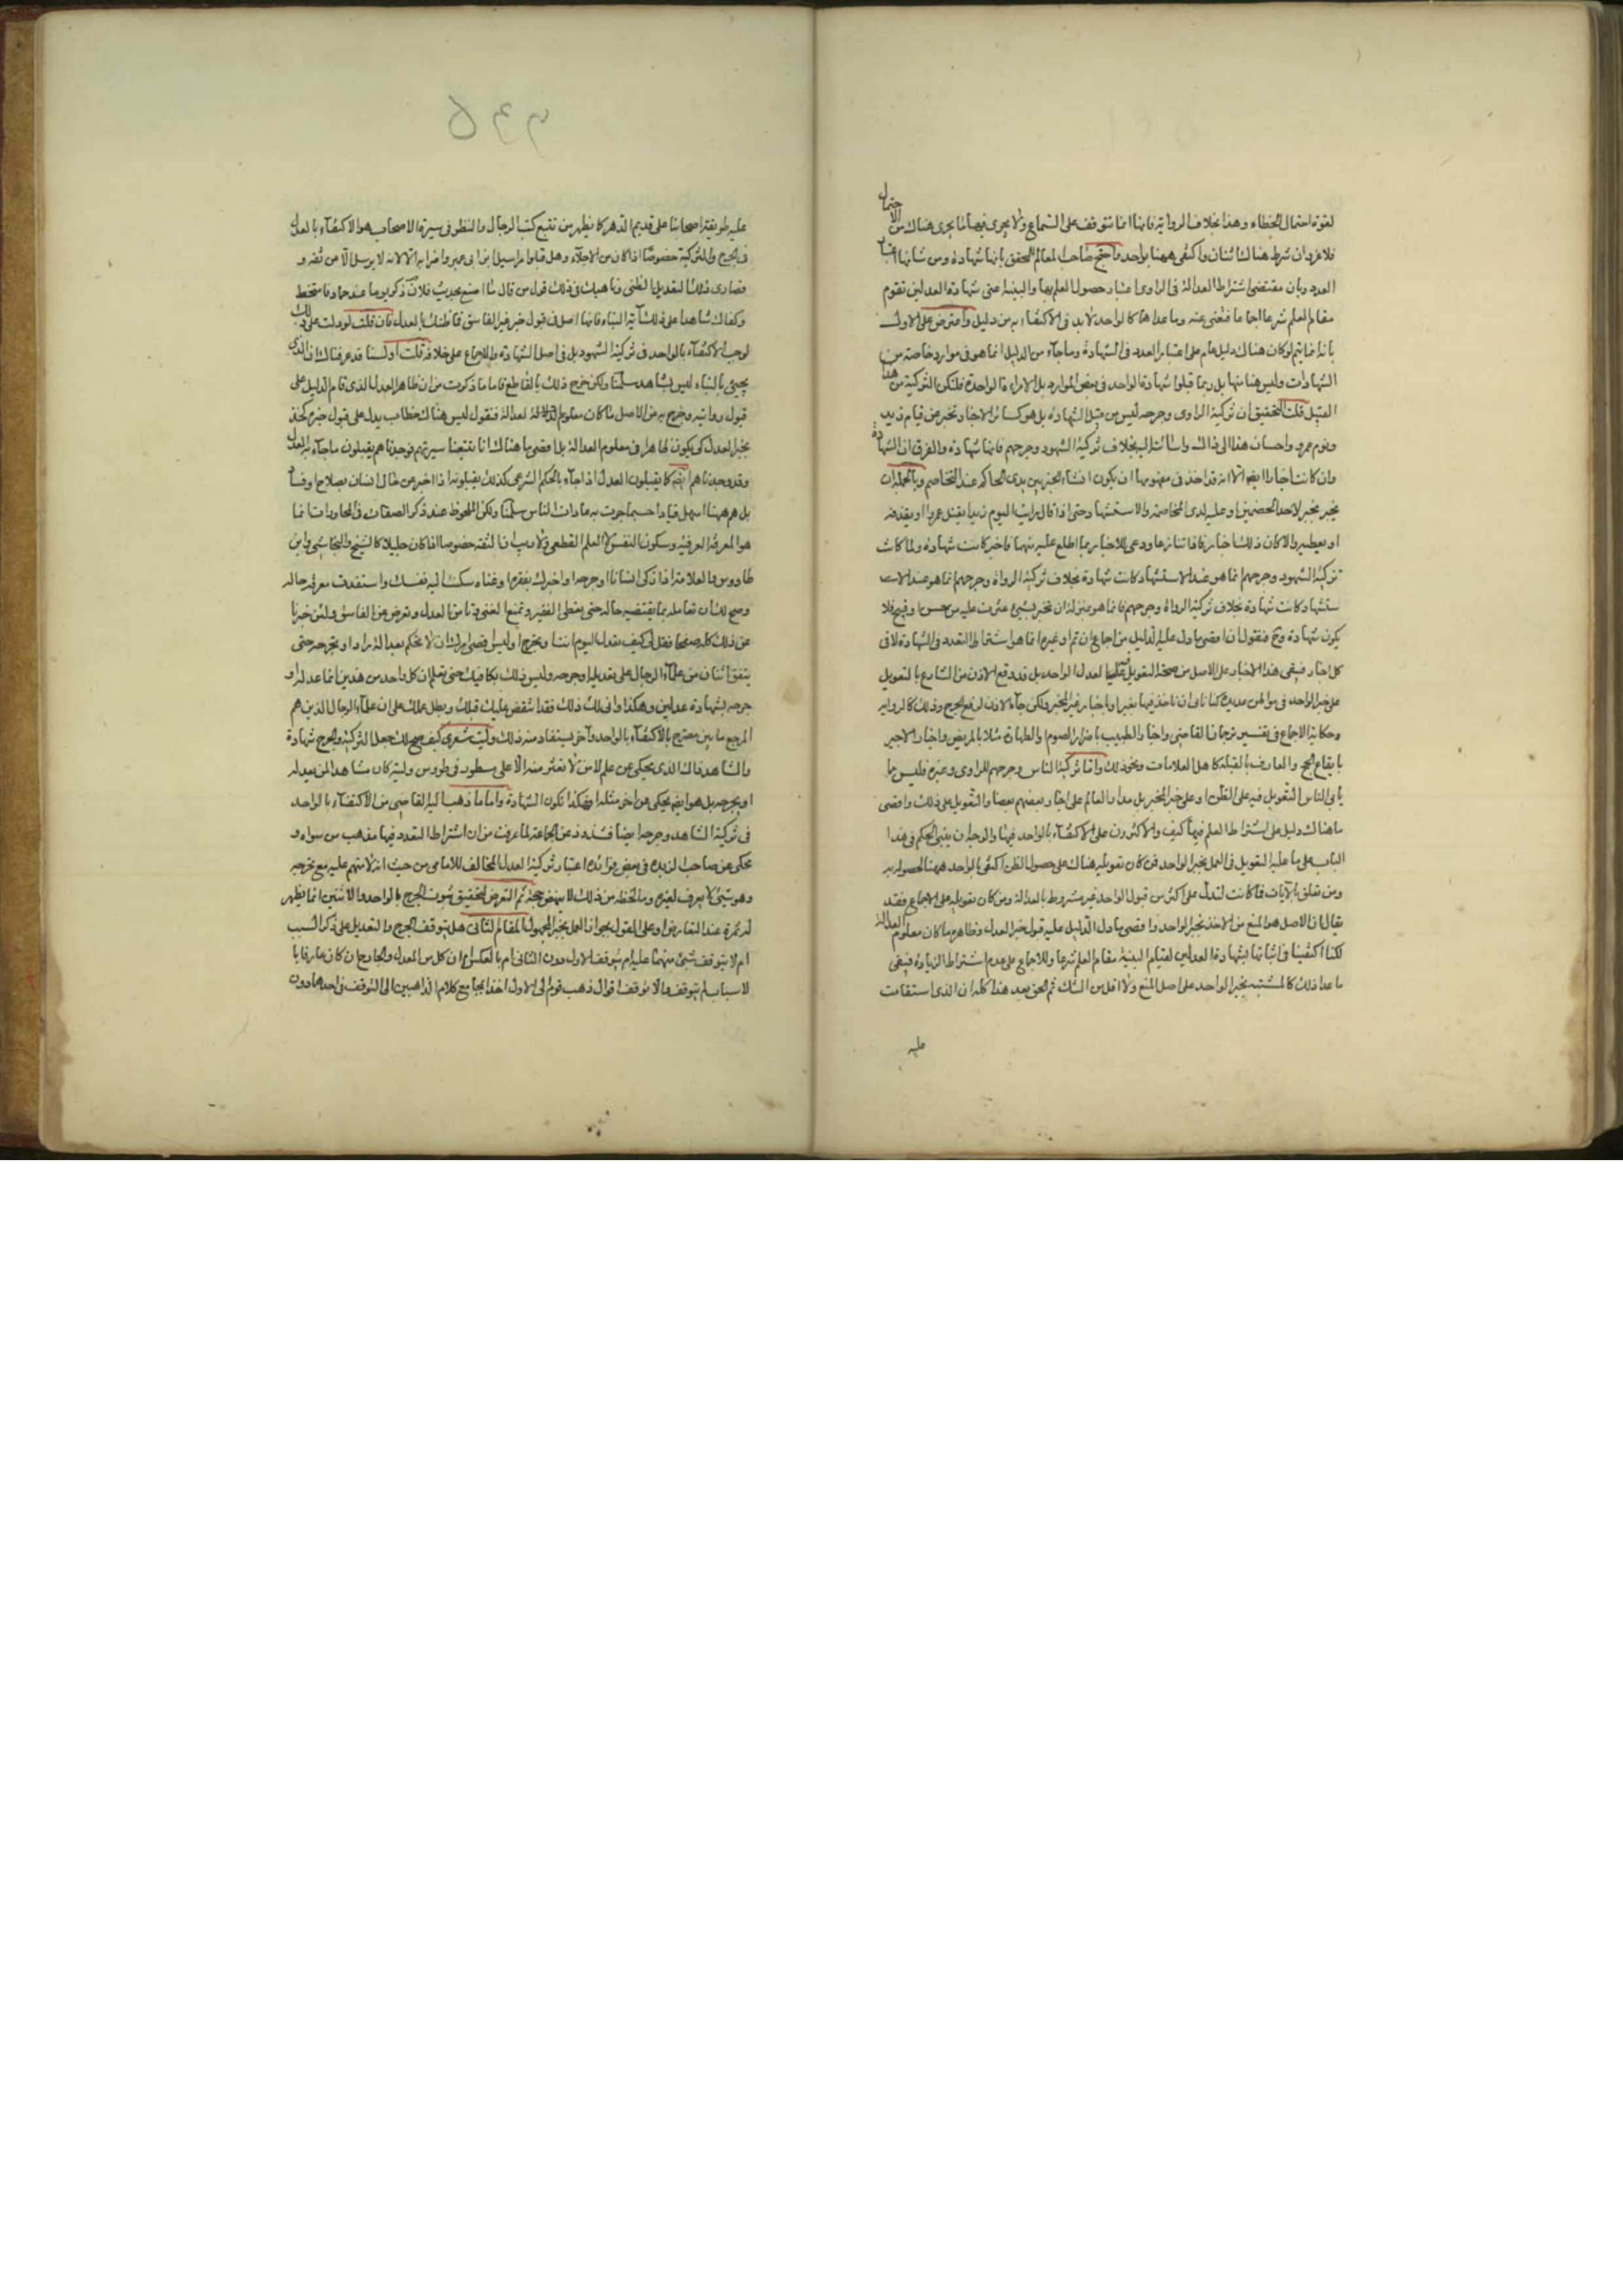 لقوة احتمال الخطاء وهذا بخلاف الرواية فانها انما تتوقف على السماع ولا يجرى فيها ما يجرى هناك من الاحتمال
فلا غرو ان شرط هناك اثنان واكتفى ههنا بواحد واحتج صاحب المعالم للمحقق بانها شهادة ومن شانها اعتبار
العدد وبان مقتضى اشتراط العدالة فى الراوى اعتبار حصول العلم بها والبينة اعنى شهادة العدلين تقوم
مقام العلم شرعا اجماعا فتغنى عنه وما عداها كالواحد لا بد فى الاكتفاء به من دليل واعترض على الاول
بانه انما يتم لو كان هناك دليل عام على اعتبار العدد فى الشهادة وما جاء من الدليل انما هو فى موارد خاصة من
الشهادات وليس هنا منها بل ربما قبلوا شهادة الواحد فى بعض الموارد بل الامراة الواحدة فلتكن التزكية من هذا
القبيل قلت التحقيق ان تزكية الراوى وجرحه ليس من قبيل الشهادة بل هو كسائر الاخبار تخبر عن قيام زيد
ونوم عمرو واحسان هذا الى ذاك واسائته اليه بخلاف تزكية الشهود وجرحهم فانها شهادة والفرق ان الشهادة
وان كانت اخبارا ايضا الا انه قد اخذ فى مفهومها ان يكون انشاء الخبر بين يدى الحاكم عند التخاصم وبالجملة ان
يخبر بخبر لاحد الخصمين او عليه لدى المخاصمة والاستشهاد حتى اذا قال رايت اليوم زيدا يقتل عمروا او يقذفه
او يعطيه والا كان ذلك اخبارا فاذا تنازعا ودعى للاخبار بما اطلع عليه منهما فاخبر كانت شهادة ولما كانت
تزكية الشهود وجرحهم انما هو عند الاستشهاد كانت شهادة بخلاف تزكية الرواة وجرحهم انما هو عند الا
ستشهاد كانت شهادة بخلاف تزكية الرواة وجرحهم فانما هو بمنزلة ان تخبر بشئ عثرت عليه من حسن او قبيح فلا
يكون شهادة وح فنقول ان اقصى ما دل عليه الدليل من اجماع ان تم او غيره انما هو اشتراط التعدد فى الشهادة لا فى
كل اخبار فيبقى هذا الاخبار على الاصل من صحة التعويل على العدل الواحد بل قد وقع الاذن من الشارع بالتعويل
على خبر الواحد فى مواطن عديدة
وحكاية الاجماع فى تفسير ترجمان القاضى واخبار الطبيب باضرار الصوم والطهارة مثلا بالمريض واخبار الاجير
بايقاع الحج والعارف بالقبلة كاهل العلامات ونحو ذلك واما تزكية الناس وجرحهم للراوى وغيره فليس ما
ما هناك دليل على اشتراط العلم فيهما كيف والاكثرون على الاكتفاء بالواحد فيهما والوجه ان يبنى الحكم فى هذا
الباب على ما عليه التعويل فى العمل بخبر الواحد فمن كان تعويله هناك على حصول الظن اكتفى بالواحد ههنا لحصوله به
ومن تعلق بالايات فما كانت لتدل على اكثر من قبول الواحد غير مشروط بالعدالة ومن كان تعويله على الاجماع فقد
يقال ان الاصل هو المنع من الاخذ بخبر الواحد واقصى ما دل الدليل عليه قبول خبر العدل وظاهره ما كان معلوم العدالة
لكنا اكتفينا فى اثباتها بشهادة العدلين لقيام البينة مقام العلم شرعا وللاجماع على عدم اشتراط الزيادة فيبقى
ما عدا ذلك كالمشتبه بخبر الواحد على اصل المنع ولا اقل من الشك ثم الحق بعد هذا كله ان الذى استقامت
عليه
936
عليه طريقة اصحابنا على قديم الدهر كما يظهر من تتبع كتب الرجال والنظر فى سيرة الاصحاب هو الاكتفاء بالعدل
فى الجرح والتزكية خصوصا اذا كان من الاجلاء وهل قبلوا مراسيل ابن ابى عمير واضرابه الا لانه لا يرسل الا عن ثقة و
قصارى ذلك التعديل الظنى وناهيك فى ذلك قول من قال ما اصنع بحديث فلان
وكفاك شاهدا على ذلك آية النباء فانها اصل فى قبول خبر غير الفاسق فما ظنك بالعدل فان قلت لو دلت على ذلك
لوجب الاكتفاء بالواحد فى تزكية الشهود بل فى اصل الشهادة والاجماع على خلافه قلت اولسنا قد عرفناك ان الذى
يجيئ بالنباء ليس بشاهد سلمنا ولكن خرج ذلك بالقاطع فاما ما ذكرت من ان ظاهر العدل الذى قام الدليل على
قبول روايته وخرج به من الاصل ما كان معلوم العدالة فنقول ليس هناك خطاب يدل على قبول خبر
العدل كى يكون ظاهرا فى معلوم العدالة بل اقصى ما هناك انا تتبعنا سيرتهم فوجدناهم يقبلون ما جاء به العدل
وقد وجدناهم ايضا كما يقبلون العدل اذا جاء بالحكم الشرعى كذلك يقبلونه اذا اخبر عن حال انسان بصلاح او فساد
بل هم ههنا اسهل قيادا حسبما جرت به عادات الناس سلمنا ولكن الملحوظ عند ذكر الصفات فى المحاورات انما
هو المعرفة العرفية وسكون النفس لا العلم القطعى ولا ريب ان الثقة خصوصا اذا كان جليلا كالشيخ والنجاشى وابن
طاووس والعلامة اذا زكى انسانا او جرحه او اخبرك بفقره او غناه سكنت اليه نفسك واستفدت معرفة حاله
وصح لك ان تعامله بما يقتضيه حاله حتى يعطى الفقير وتمنع الغنى وتامن بالعدل وتعرض عن الفاسق ولئن ضربنا
عن ذلك كله صفحا فقل لى كيف
يتفق اثنان من علماء الرجال على تعديله او جرحه وليس ذلك بكافيك حتى تعلم ان كل واحد من هذين انما عدله او
جرحه بشهادة عدلين وهكذا وانى لك ذلك فقد انتقض عليك قبلك وبطل عملك على ان علماء الرجال الذين هم
المرجع ما بين مصرح بالاكتفاء بالواحد وآخر يستفاد منه ذلك وليت شعرى كيف صح لك جعل التزكية والجرح شهادة
والشاهد
او يجرحه بل هو ايضا يحكى عن اخر مثله افهكذا تكون الشهادة واما ما ذهب اليه القاضى من الاكتفاء بالواحد
فى تزكية الشاهد وجرحه ايضا فشذوذ عن الجماعة لما عرفت من ان اشتراط التعدد فيها مذهب من سواه و
يحكى عن صاحب الزبدة فى بعض فوائده اعتبار تزكية العدل المخالف للامامى من حيث انه لا يتهم عليه مع تحرجه
وهو شئ لا يعرف لغيره وما لحظه من ذلك لا ينهض حجة ثم التعرض لتحقيق ثبوت الجرح بالواحد والاثنين انما يظهر
له ثمرة عند التعارض او على القول بجواز العمل بخبر المجهول المقام الثانى هل يتوقف الجرح والتعديل على ذكر السبب
ام لا يتوقف شئ منهما عليه ام يتوقف الاول دون الثانى ام بالعكس ام ان كان كل من المعدل والجارح عارفا با
لاسباب لم يتوقف والا توقف اقوال ذهب قوم الى الاول اخذا بمجامع كلام الذاهبين الى التوقف فى احدهما دون